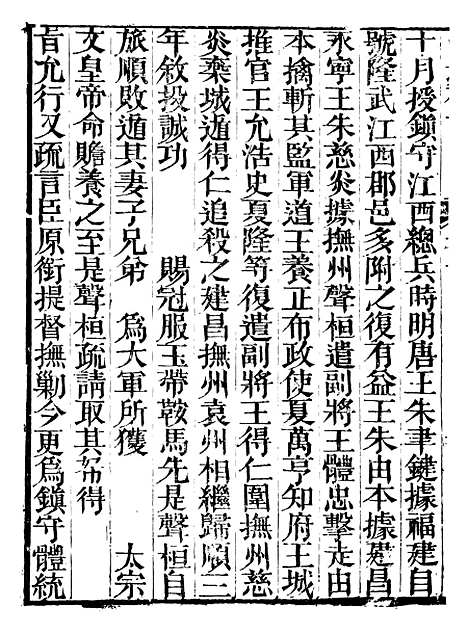 十月授鎮守江西總兵時明唐王朱聿鍵據福建自
號隆武江西郡邑多附之復有益王朱由本據建昌
永寧王朱慈炎據撫州聲桓遣副將王體忠擊走由
本擒斬其監軍道王養正布政使夏萬亨知府王域
推官王允浩史夏隆等復遣副將王得仁圍撫州慈
炎棄城遁得仁追殺之建昌撫州袁州相繼歸順三
年敘投誠功　賜冠服玉帶鞍馬先是聲桓自
旅順敗遁其妻子兄弟　為大軍所獲　太宗
文皇帝命贍養之至是聲桓疏請取其帑得
旨允行又疏言臣原銜提督撫勦今更為鎮守體統